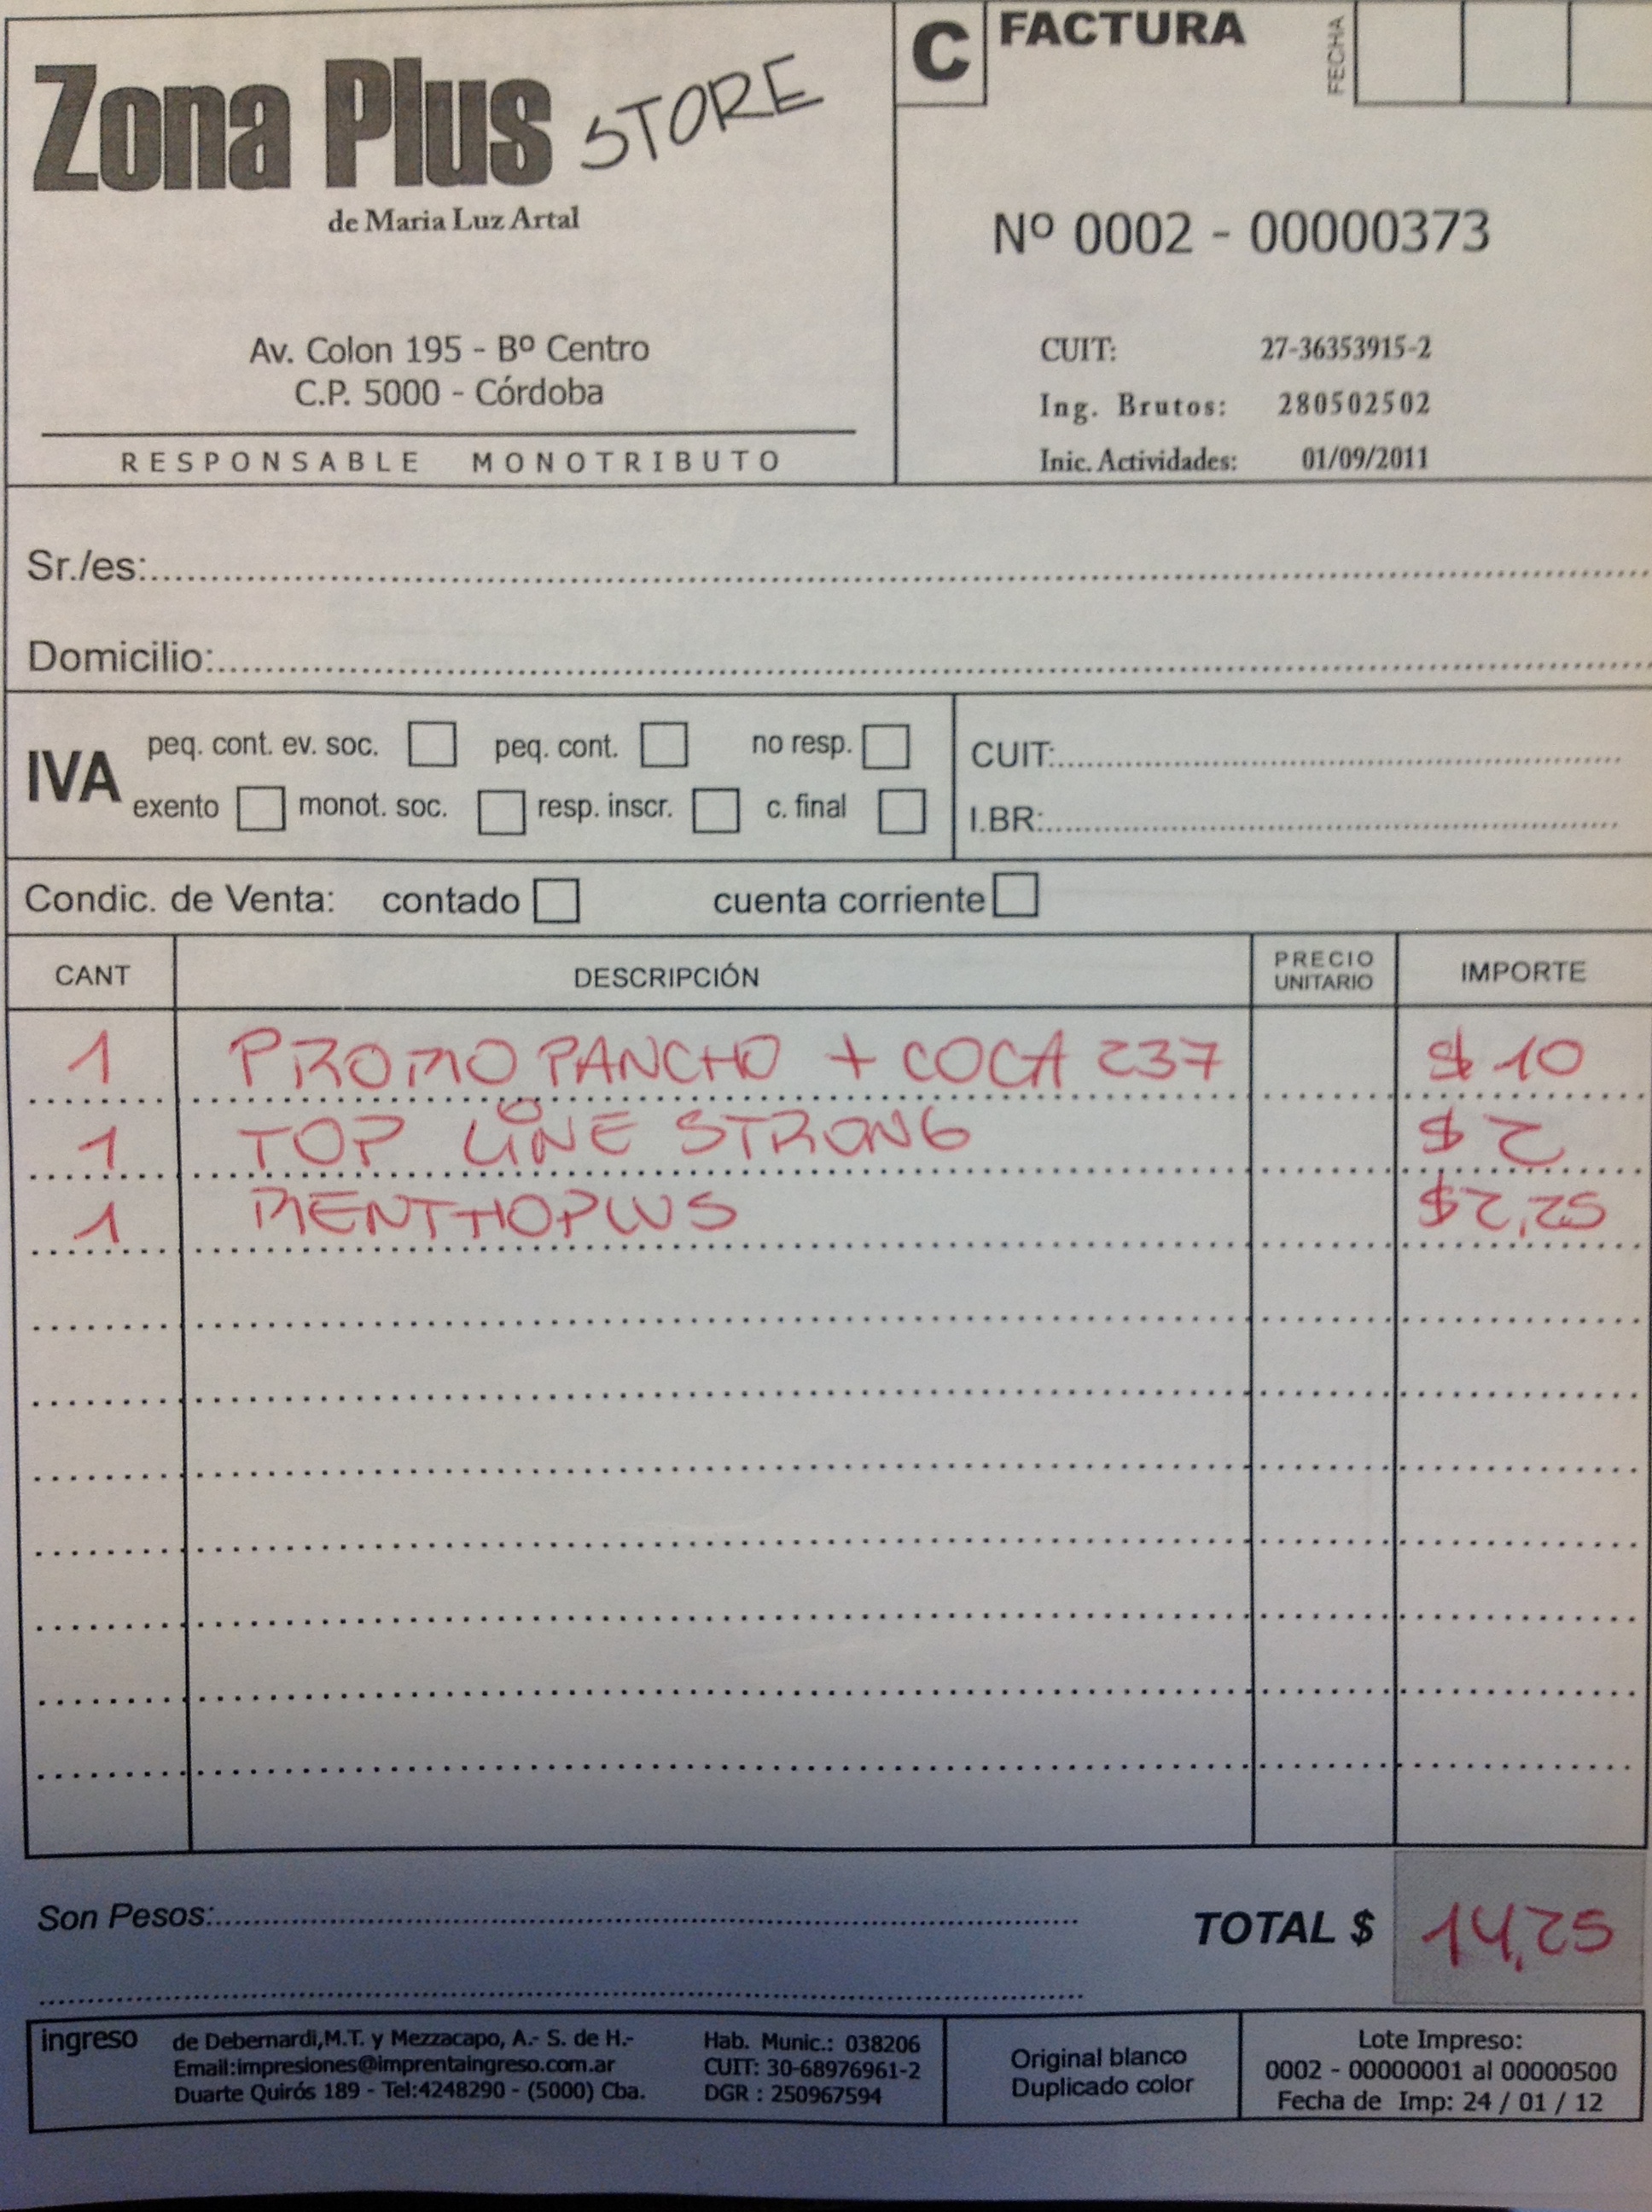 Zona Plus STORE
de Maria Luz Artal
Av. Colon 195 - Bº Centro
C.P. 5000 - Córdoba
RESPONSABLE MONOTRIBUTO
C FACTURA
FECHA
Nº 0002 - 00000373
CUIT: 27-36353915-2
Ing. Brutos: 280502502
Inic. Actividades: 01/09/2011
Sr./es:
Domicilio:
IVA
peq. cont. ev. soc. peq. cont. no resp.
exento monot. soc. resp. inscr. c. final
CUIT:
I.BR:
Condic. de Venta: contado cuenta corriente
CANT DESCRIPCIÓN PRECIO UNITARIO IMPORTE
1 PROMO PANCHO + COCA 237 $ 10
1 TOP LINE STRONG $ 2
1 MENTHOPLUS $2,25
Son Pesos:
TOTAL $ 14,25
ingreso
de Debernardi,M.T. y Mezzacapo, A.- S. de H.-
Email:impresiones@imprentaingreso.com.ar
Duarte Quirós 189 - Tel:4248290 - (5000) Cba.
Hab. Munic.: 038206
CUIT: 30-68976961-2
DGR : 250967594
Original blanco
Duplicado color
Lote Impreso:
0002 - 00000001 al 00000500
Fecha de Imp: 24 / 01 / 12